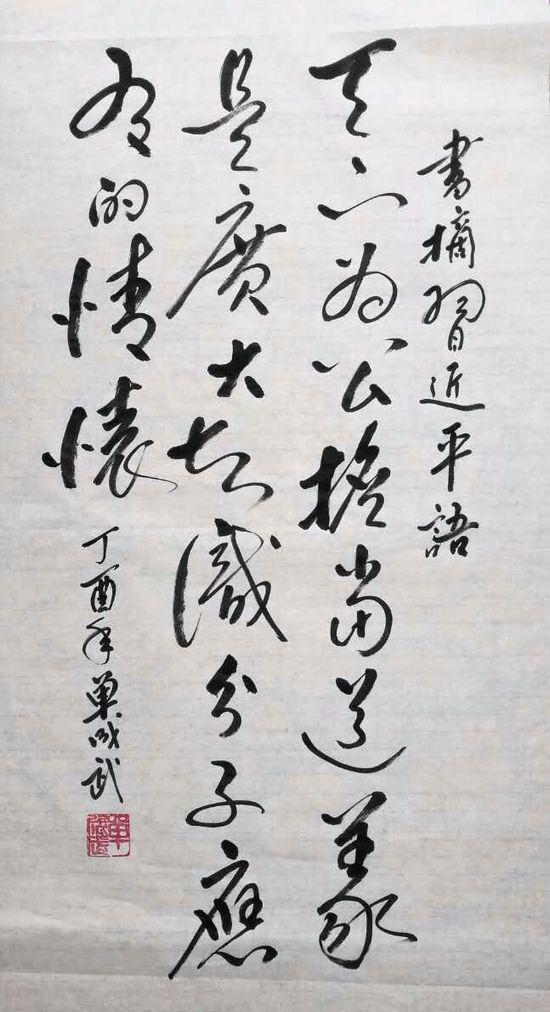 書摘習近平語
天下为公擔当道義
是廣大知識分子應
有的情懷
丁酉年單成武